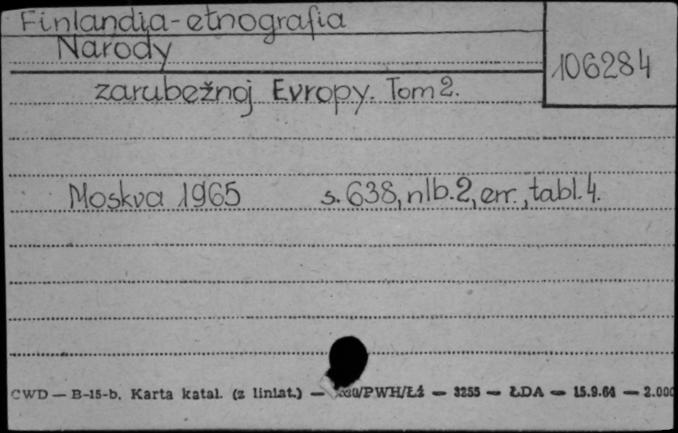 Finlandia-etnografia
Narody
106284
zarubežnoj Evropy. Tom 2.
Moskva 1965 s. 638, nlb. 2, err., tabl. 4.
CWD — B-15-b. Karta katal. (z liniat.) — /PWH/Łź — 3255 — ŁDA — 15.9.64 — 2.000